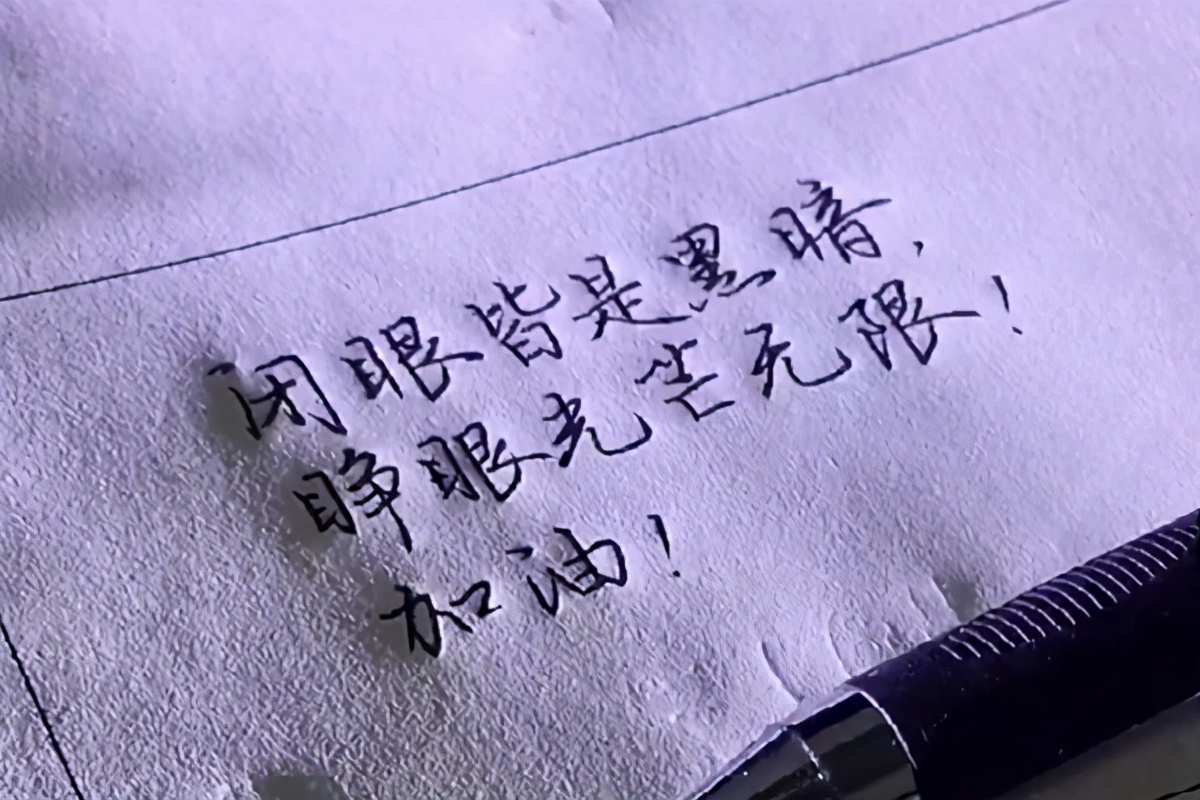 闭眼皆是黑暗,
睁眼光芒无限!
加油!